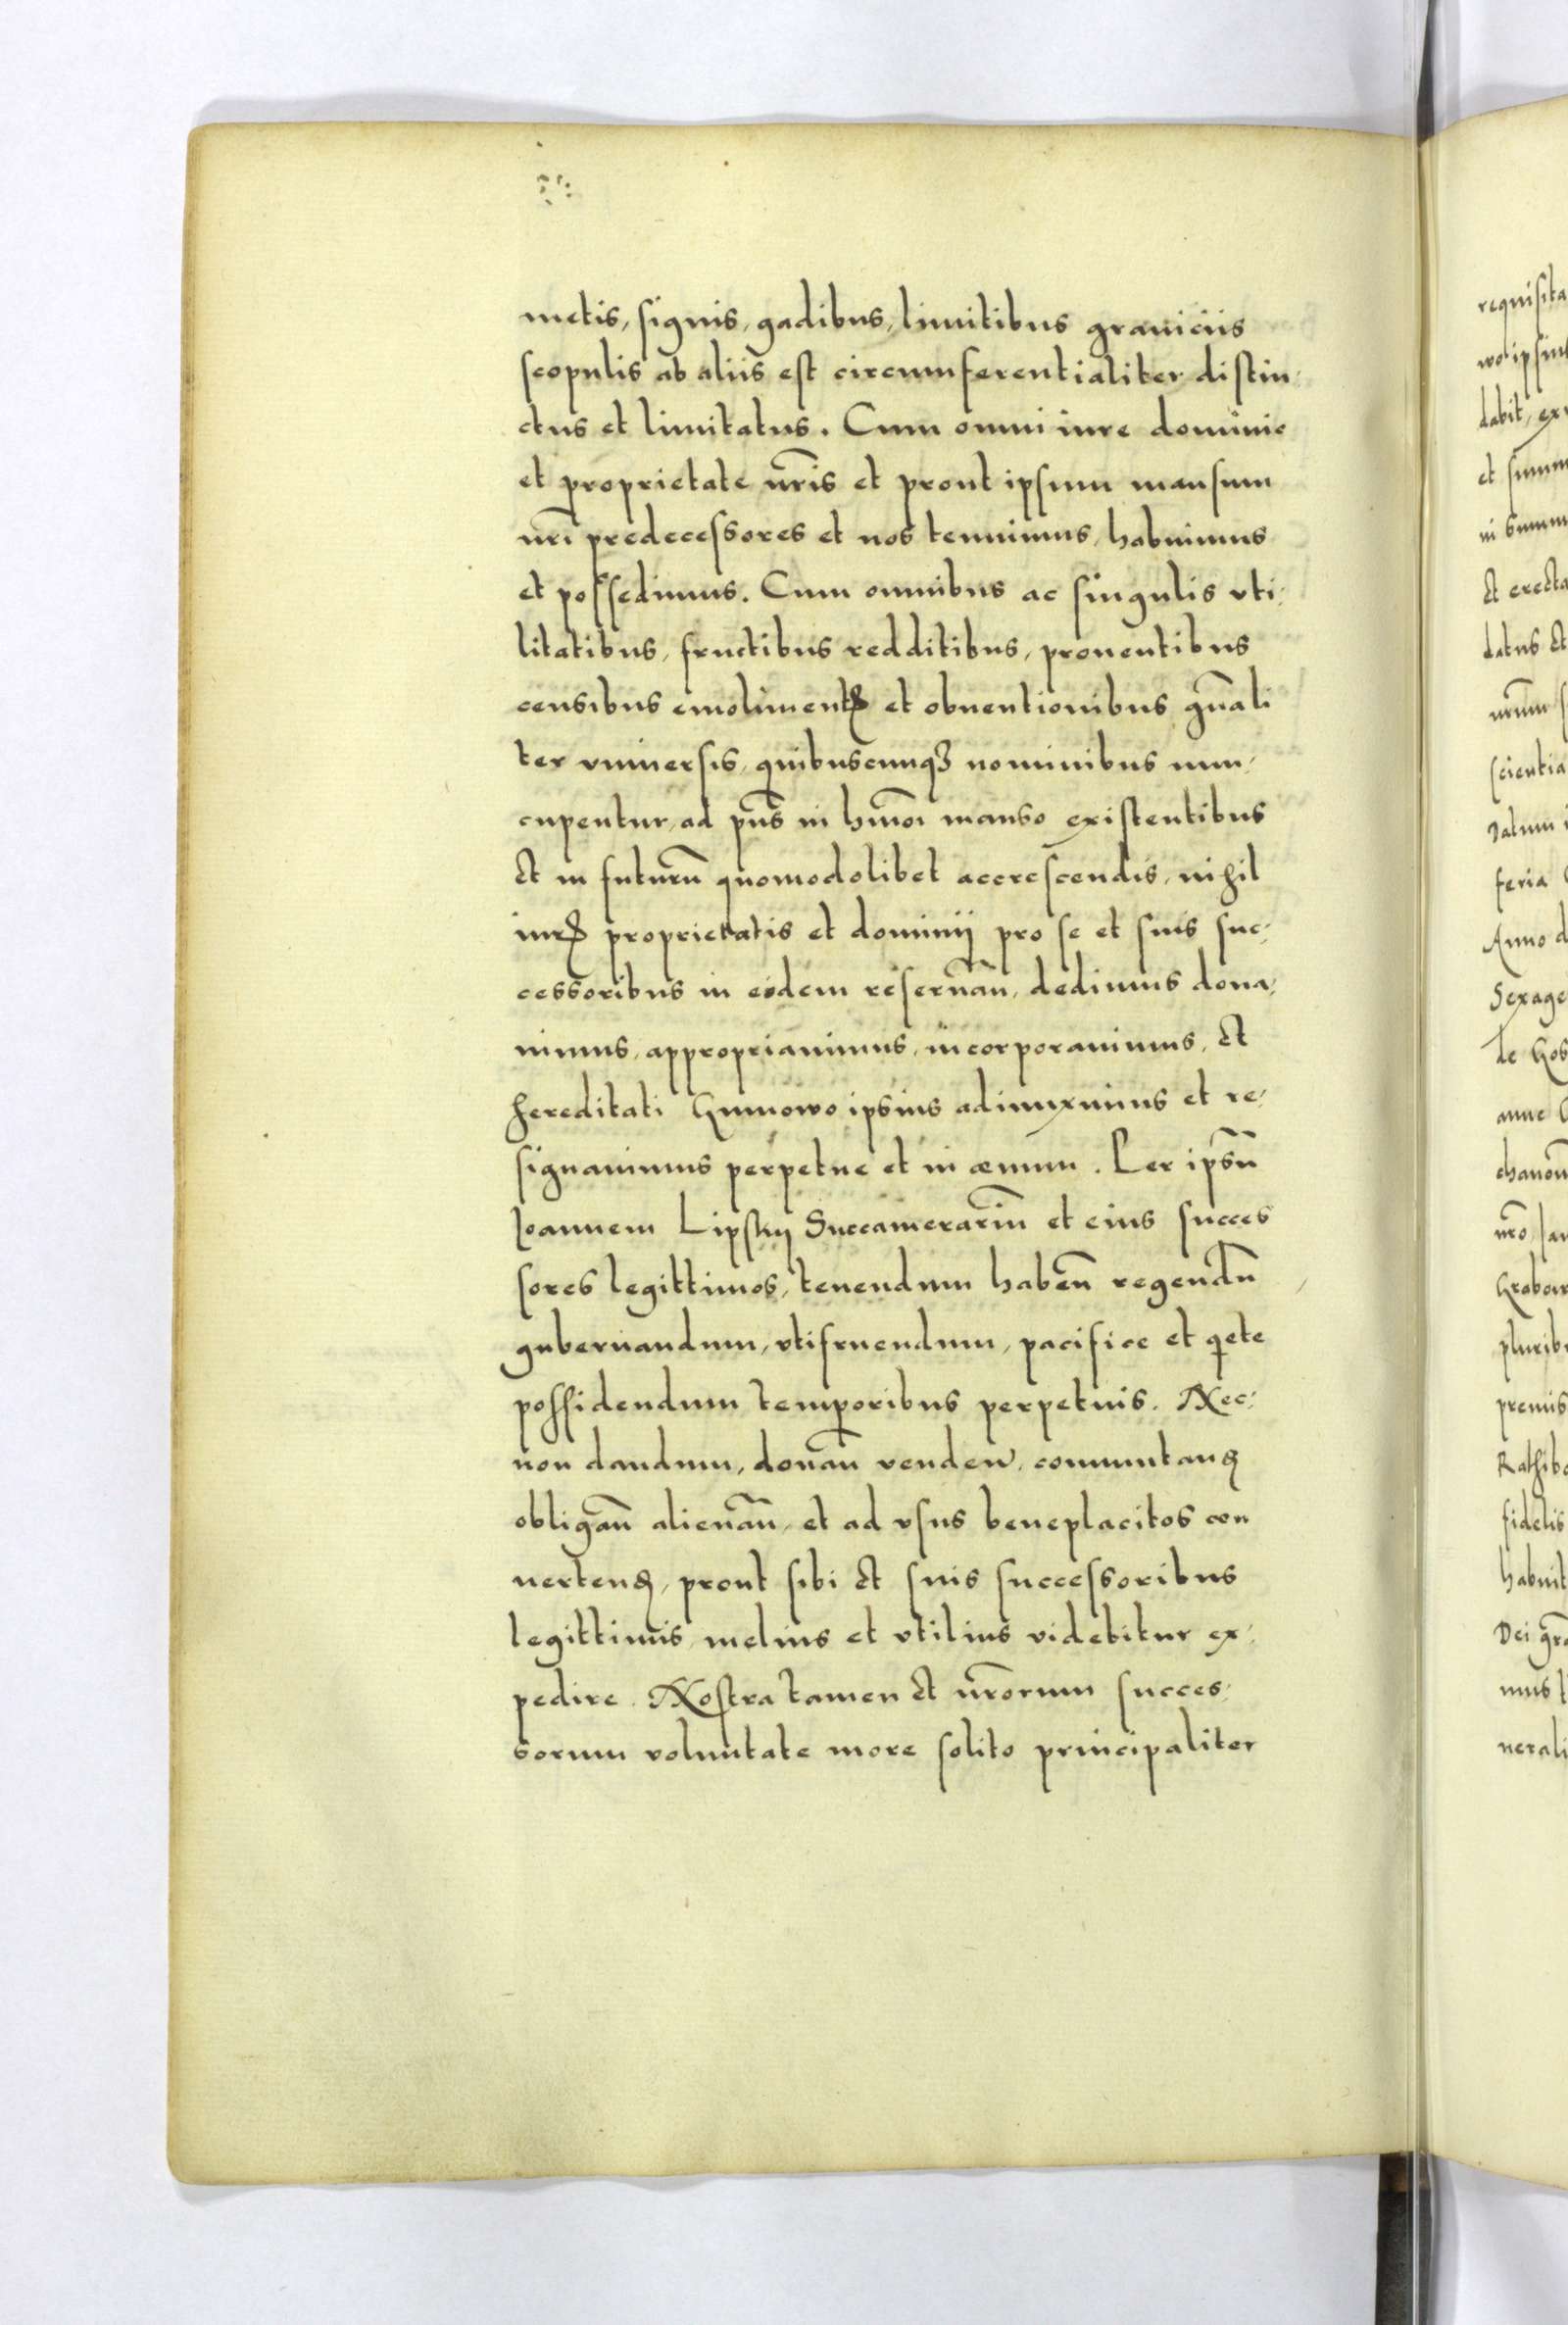 metis, signis, gadibus, limitibus graniciis
scopulis ab aliis est circumferentialiter distin-
ctus et limitatus. Cum omni iure dominio
et proprietate nr̃is et prout ipsum mansum
nr̃i predecessores et nos tenuimus, habuimus
et possedimus. Cum omnibus ac singulis vti-
litatibus, fructibus redditibus, prouentibus
censibus emolimentꝭ et obuentionibus gñali
ter vniuersis, quibuscunqꝫ nominibus nun-
cupentur, ad pñs in hmõi manso existentibus
et in futurũ quomodolibet accrescendis, nihil
iurꝭ proprietatis et dominij pro se et suis suc-
cessoribus in eodem reseruãn, dedimus dona-
uimus, appropriauimus, incorporauimus, et
hereditati Gumowo ipsius adiunximus et re-
signauimus perpetue et in æuum. Per ipsũ
Ioannem Lipsky Succamerariũ et eius succes
sores legittimos, tenendum habeñ regendũ
gubernandum, vtifruendum, pacifice et qete
possidendum temporibus perpetuis. Nec-
non dandum, donãn venden, commutanꝭ
obligãn alienãn, et ad vsus beneplacitos con
uertenꝭ, prout sibi et suis successoribus
legittimis melius et vtilius videbitur ex-
pedire. Nostra tamen et nr̃orum succes-
sorum voluntate more solito principaliter
requisita
wo ipsius
dabit, ex
et summ
in summ
et erecta
datus et
nr̃um
scientia
Datum
feria
Anno d
Sexage
de Gos
anne
chanoñ
nr̃o Jan
Grabow
pluribu
premis
Rathibo
fidelis
habuit
Dei gr̃a
mus t
nerali